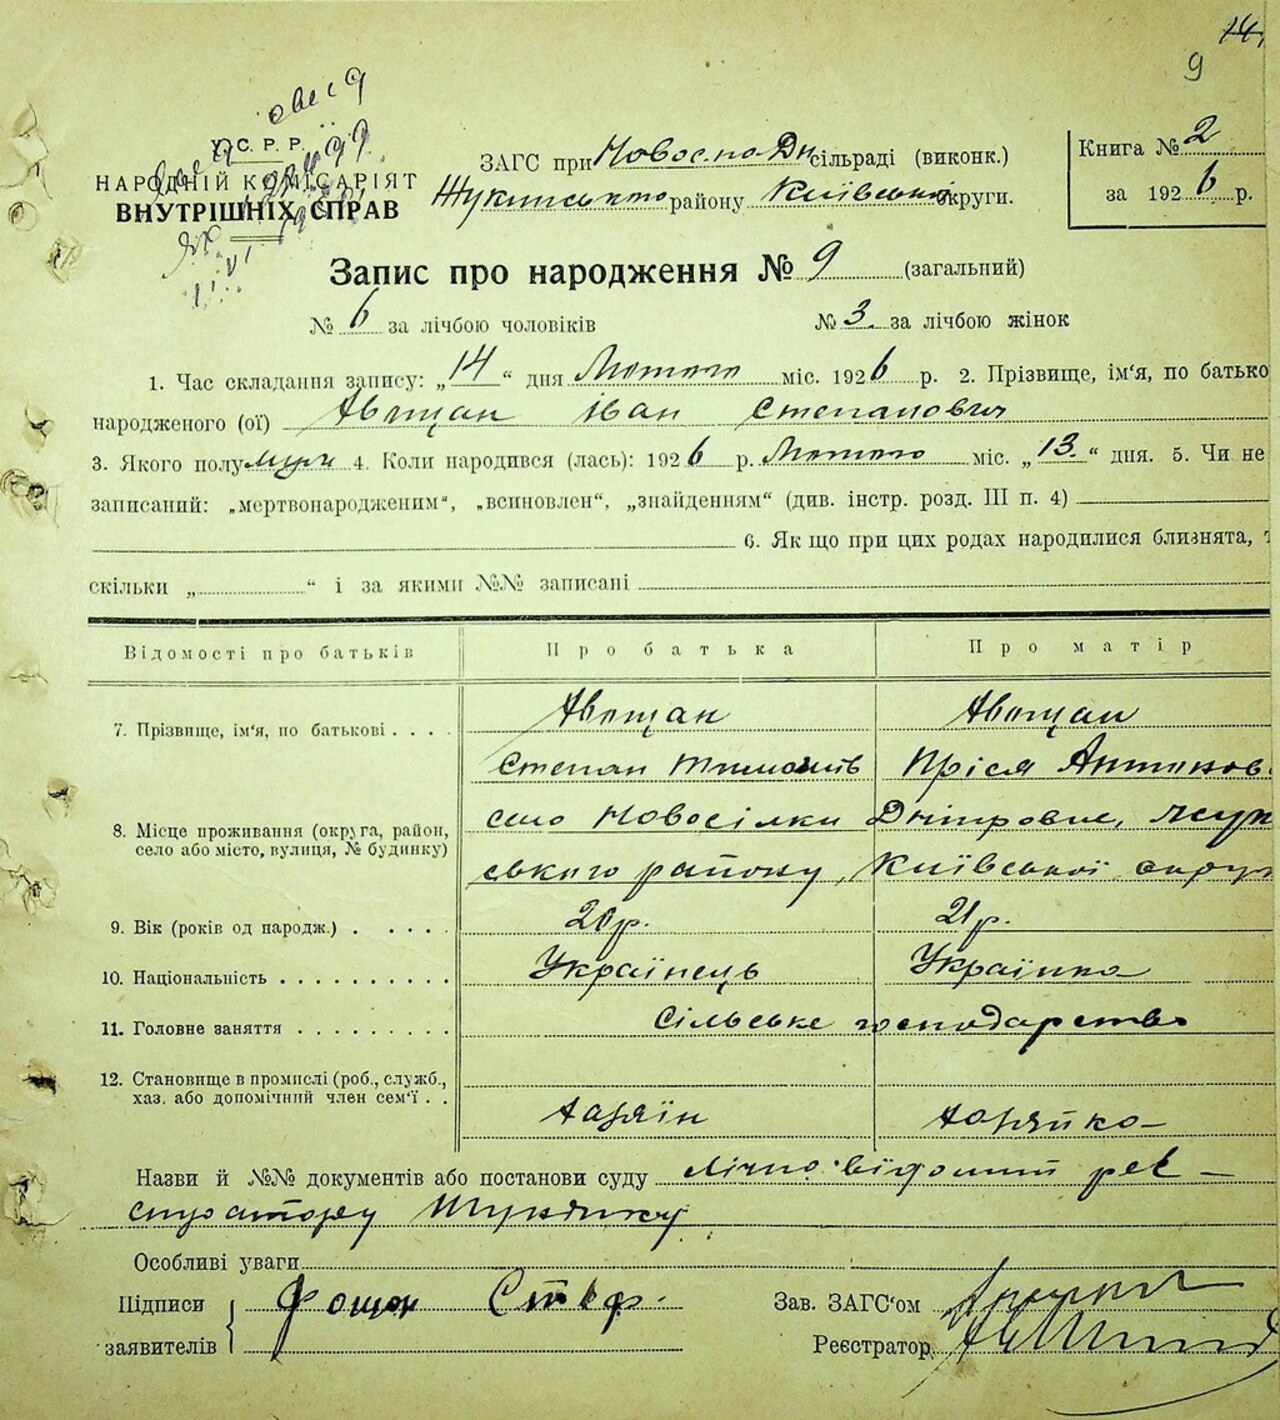 14,
9
У. С. Р. Р.
НАРОДНІЙ КОМІСАРІЯТ
ВНУТРІШНІХ СПРАВ
ЗАГС при Новос.по-Дн сільраді (виконк.)
району Київської округи.
Книга № 2
за 1926 р.
Запис про народження № 9 (загальний)
№ 6 за лічбою чоловіків № 3. за лічбою жінок
1. Час складання запису: „14“ дня Лютого міс. 1926 р. 2. Прізвище, ім‘я, по батько
народженого (ої) Іван Степанович
3. Якого полу муж 4. Коли народився (лась): 1926 р. Лютого міс. „13.“ дня. 5. Чи не
записаний: „мертвонародженим“, „всиновлен“, „знайденням“ (див. інстр. розд. III п. 4)
6. Як що при цих родах народилися близнята, т
скільки „ “ і за якими №№ записані
Відомості про батьків Про батька Про матір
7. Прізвище, ім‘я, по батькові . . . .
Степан Тимошів Пріся Антонов.
8. Місце проживання (округа, район, село або місто, вулиця, № будинку)
село Новосілки Дніпровие, Жук
ського району, Київської округ
9. Вік (років од народж.) . . . . . 20р. 21р.
10. Національність . . . . . . . . . . Українець Українка
11. Головне заняття . . . . . . . . . Сільське господарство
12. Становище в промислі (роб., служб.,
хаз. або допомічний член сем‘ї . .
хазяїн хазяйка
Назви й №№ документів або постанови суду лічно відомий реє-
стратору
Особливі уваги
Підписи
заявителів
Зав. ЗАГС‘ом
Реєстратор